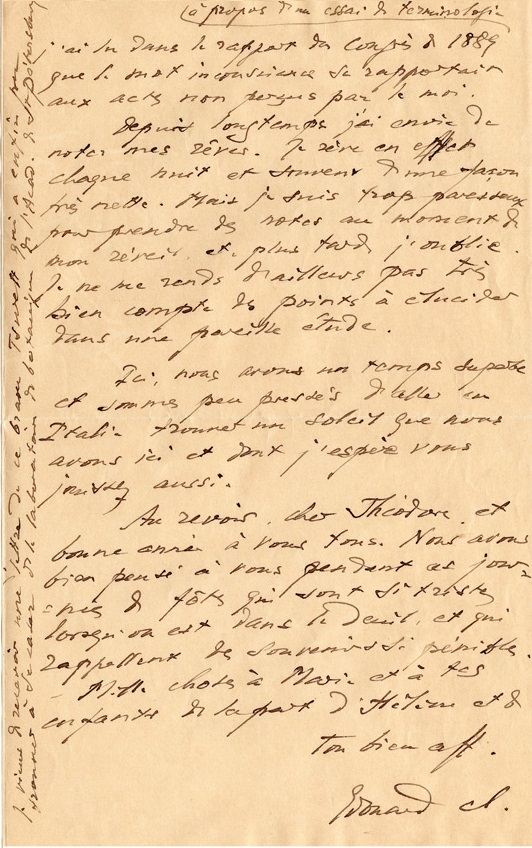 (à propos d'un essai de terminologie
j'ai lu dans le rapport du Congrès de 1889
que le mot inconscience se rapportait
aux actes non perçus par le moi.
Depuis longtemps j'ai envie de
noter mes rêves. Je rêve en effet
chaque nuit et souvent d'une façon
très nette. Mais je suis trop paresseux
pour prendre des notes au moment de
mon réveil et, plus tard, j'oublie.
Je ne me rends d'ailleurs pas très
bien compte des points à élucider
dans une pareille étude.
Ici, nous avons un temps superbe
et sommes peu pressés d'aller en
Italie trouver un soleil que nous
avons ici et dont j'espère vous
jouissez aussi.
Au revoir, cher Théodore, et
bonne année à vous tous. Nous avons
bien pensé à vous pendant ces jour-
=nées de fêtes qui sont si tristes
lorsqu'on est dans le deuil, et qui
rappellent des souvenirs si pénibles.
Mille choses à Marie et à tes
enfants de la part d'Hélène et de
ton bien aff.
Edouard Cl.
Je viens de recevoir une lettre de ce brave Tswett qui a enfin pu
trouver à se caser de laboratoire de botanique de l'Acad. de St Petersbourg